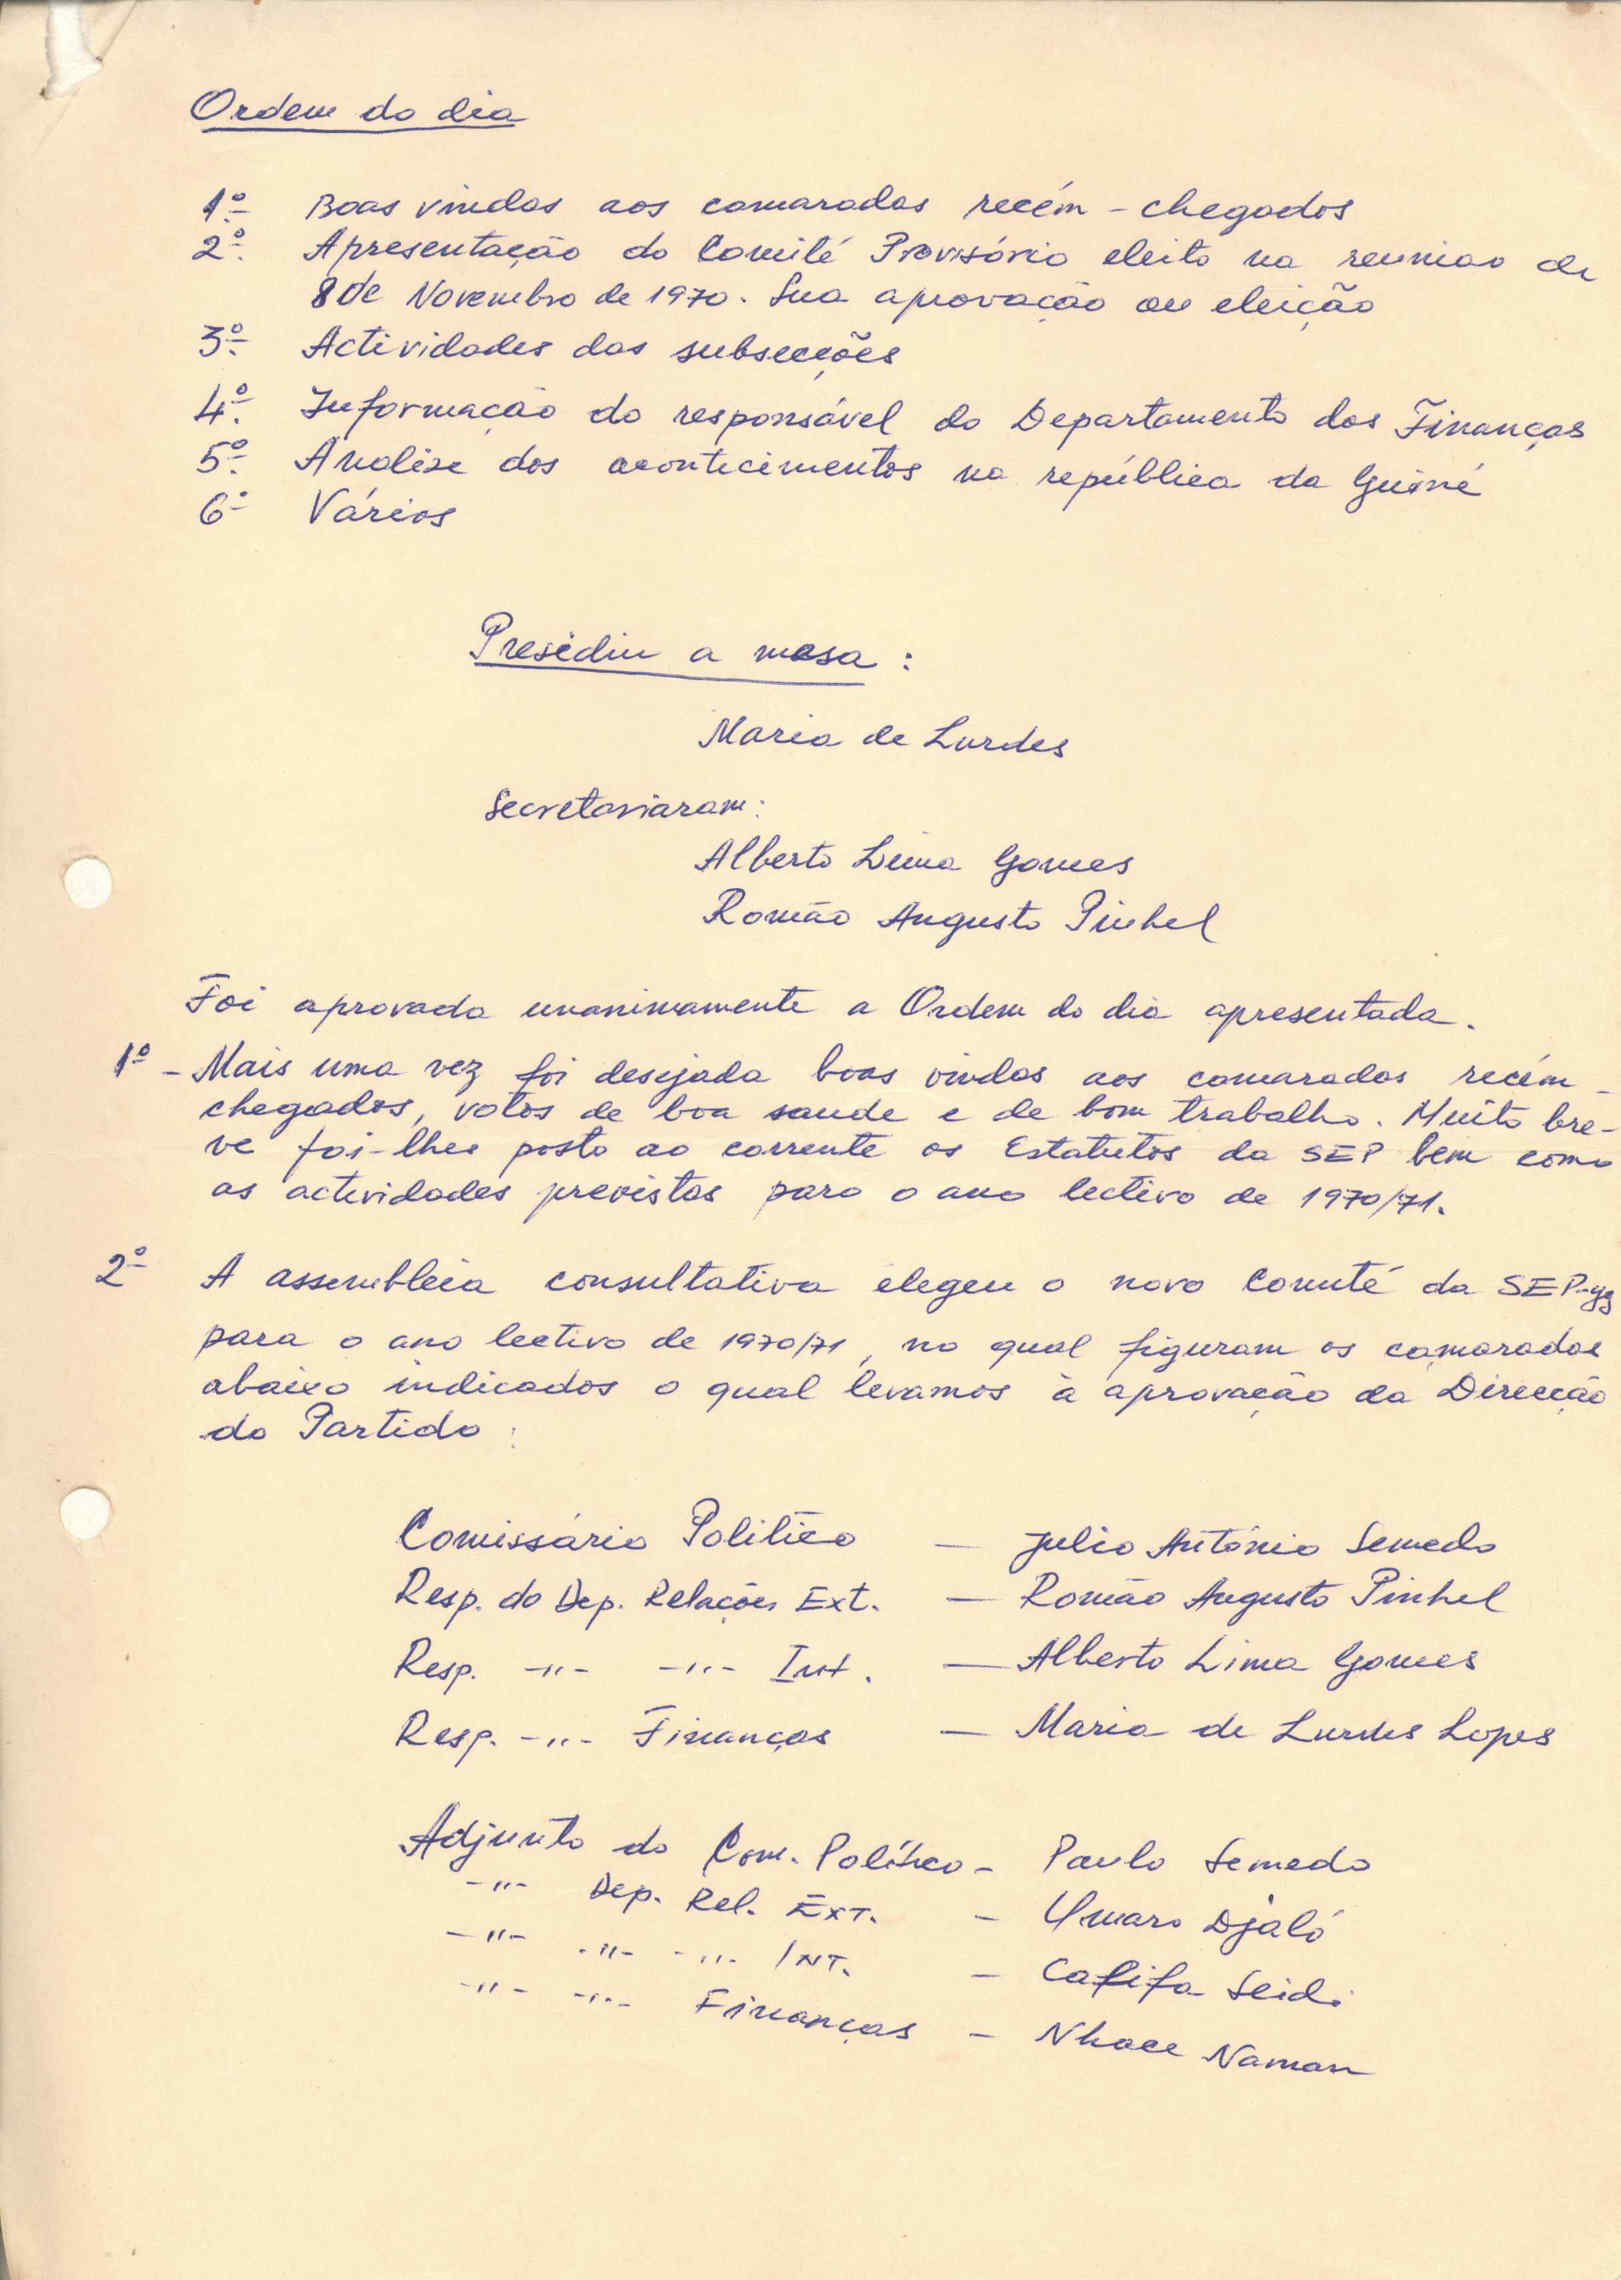 Ordem do dia
1º Boas vindas aos camaradas recém-chegados
2º Apresentação do Comité Provisório eleito na reuniao de
8 de Novembro de 1970. Sua aprovação ou eleição
3º Actividades das subsecções
4º Informação do responsável do Departamento das Finanças
5º Análise dos acontecimentos na república da Guiné
6º Vários
Presidiu a mesa :
Maria de Lurdes
Secretariaram:
Alberto Lima Gomes
Romão Augusto Pinhel
Foi aprovada unanimamente a Ordem do dia apresentada.
1º - Mais uma vez foi desejada boas vindas aos camaradas recém-
chegados, votos de boa saude e de bom trabalho. Muito bre-
ve foi-lhes posto ao corrente os Estatutos da SEP bem como
as actividades previstas para o ano lectivo de 1970/71.
2º A assembleia consultativa elegeu o novo Comité da SEP-yg
para o ano lectivo de 1970/71, no qual figuram os camaradas
abaixo indicados o qual levamos à aprovação da Direcção
do Partido :
Comissário Politico — Julio António Semedo
Resp. do Dep. Relações Ext. — Romão Augusto Pinhel
Resp. -"- -"- Int. — Alberto Lima Gomes
Resp. -"- Finanças — Maria de Lurdes Lopes
Adjunto do Com. Político - Paulo Semedo
-"- Dep. Rel. Ext. - Umaro Djaló
-"- -"- -"- INT. - Cafifa Seidi
-"- -"- Finanças - Nhace Naman